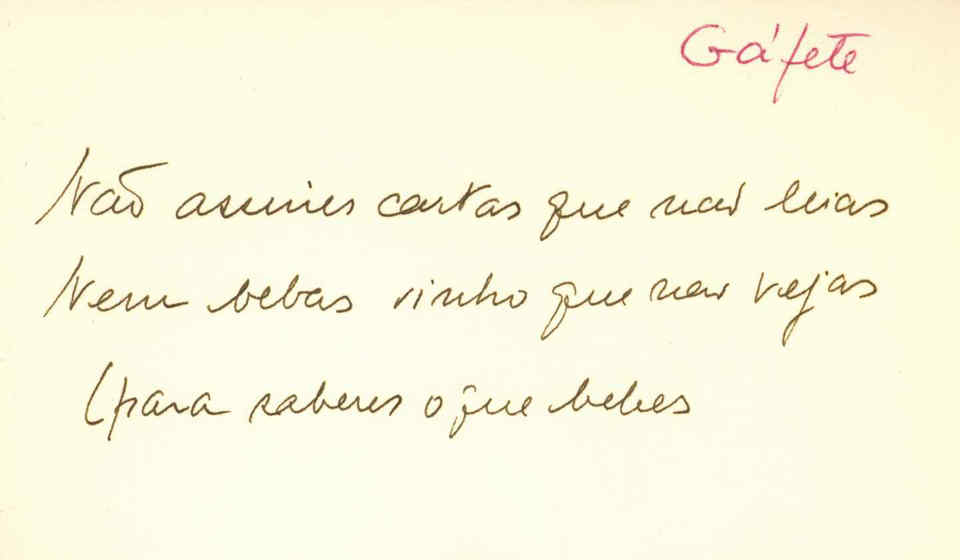 Gáfete
Não assines cartas que não leias
Nem bebas vinho que não vejas
(para saberes o que bebes